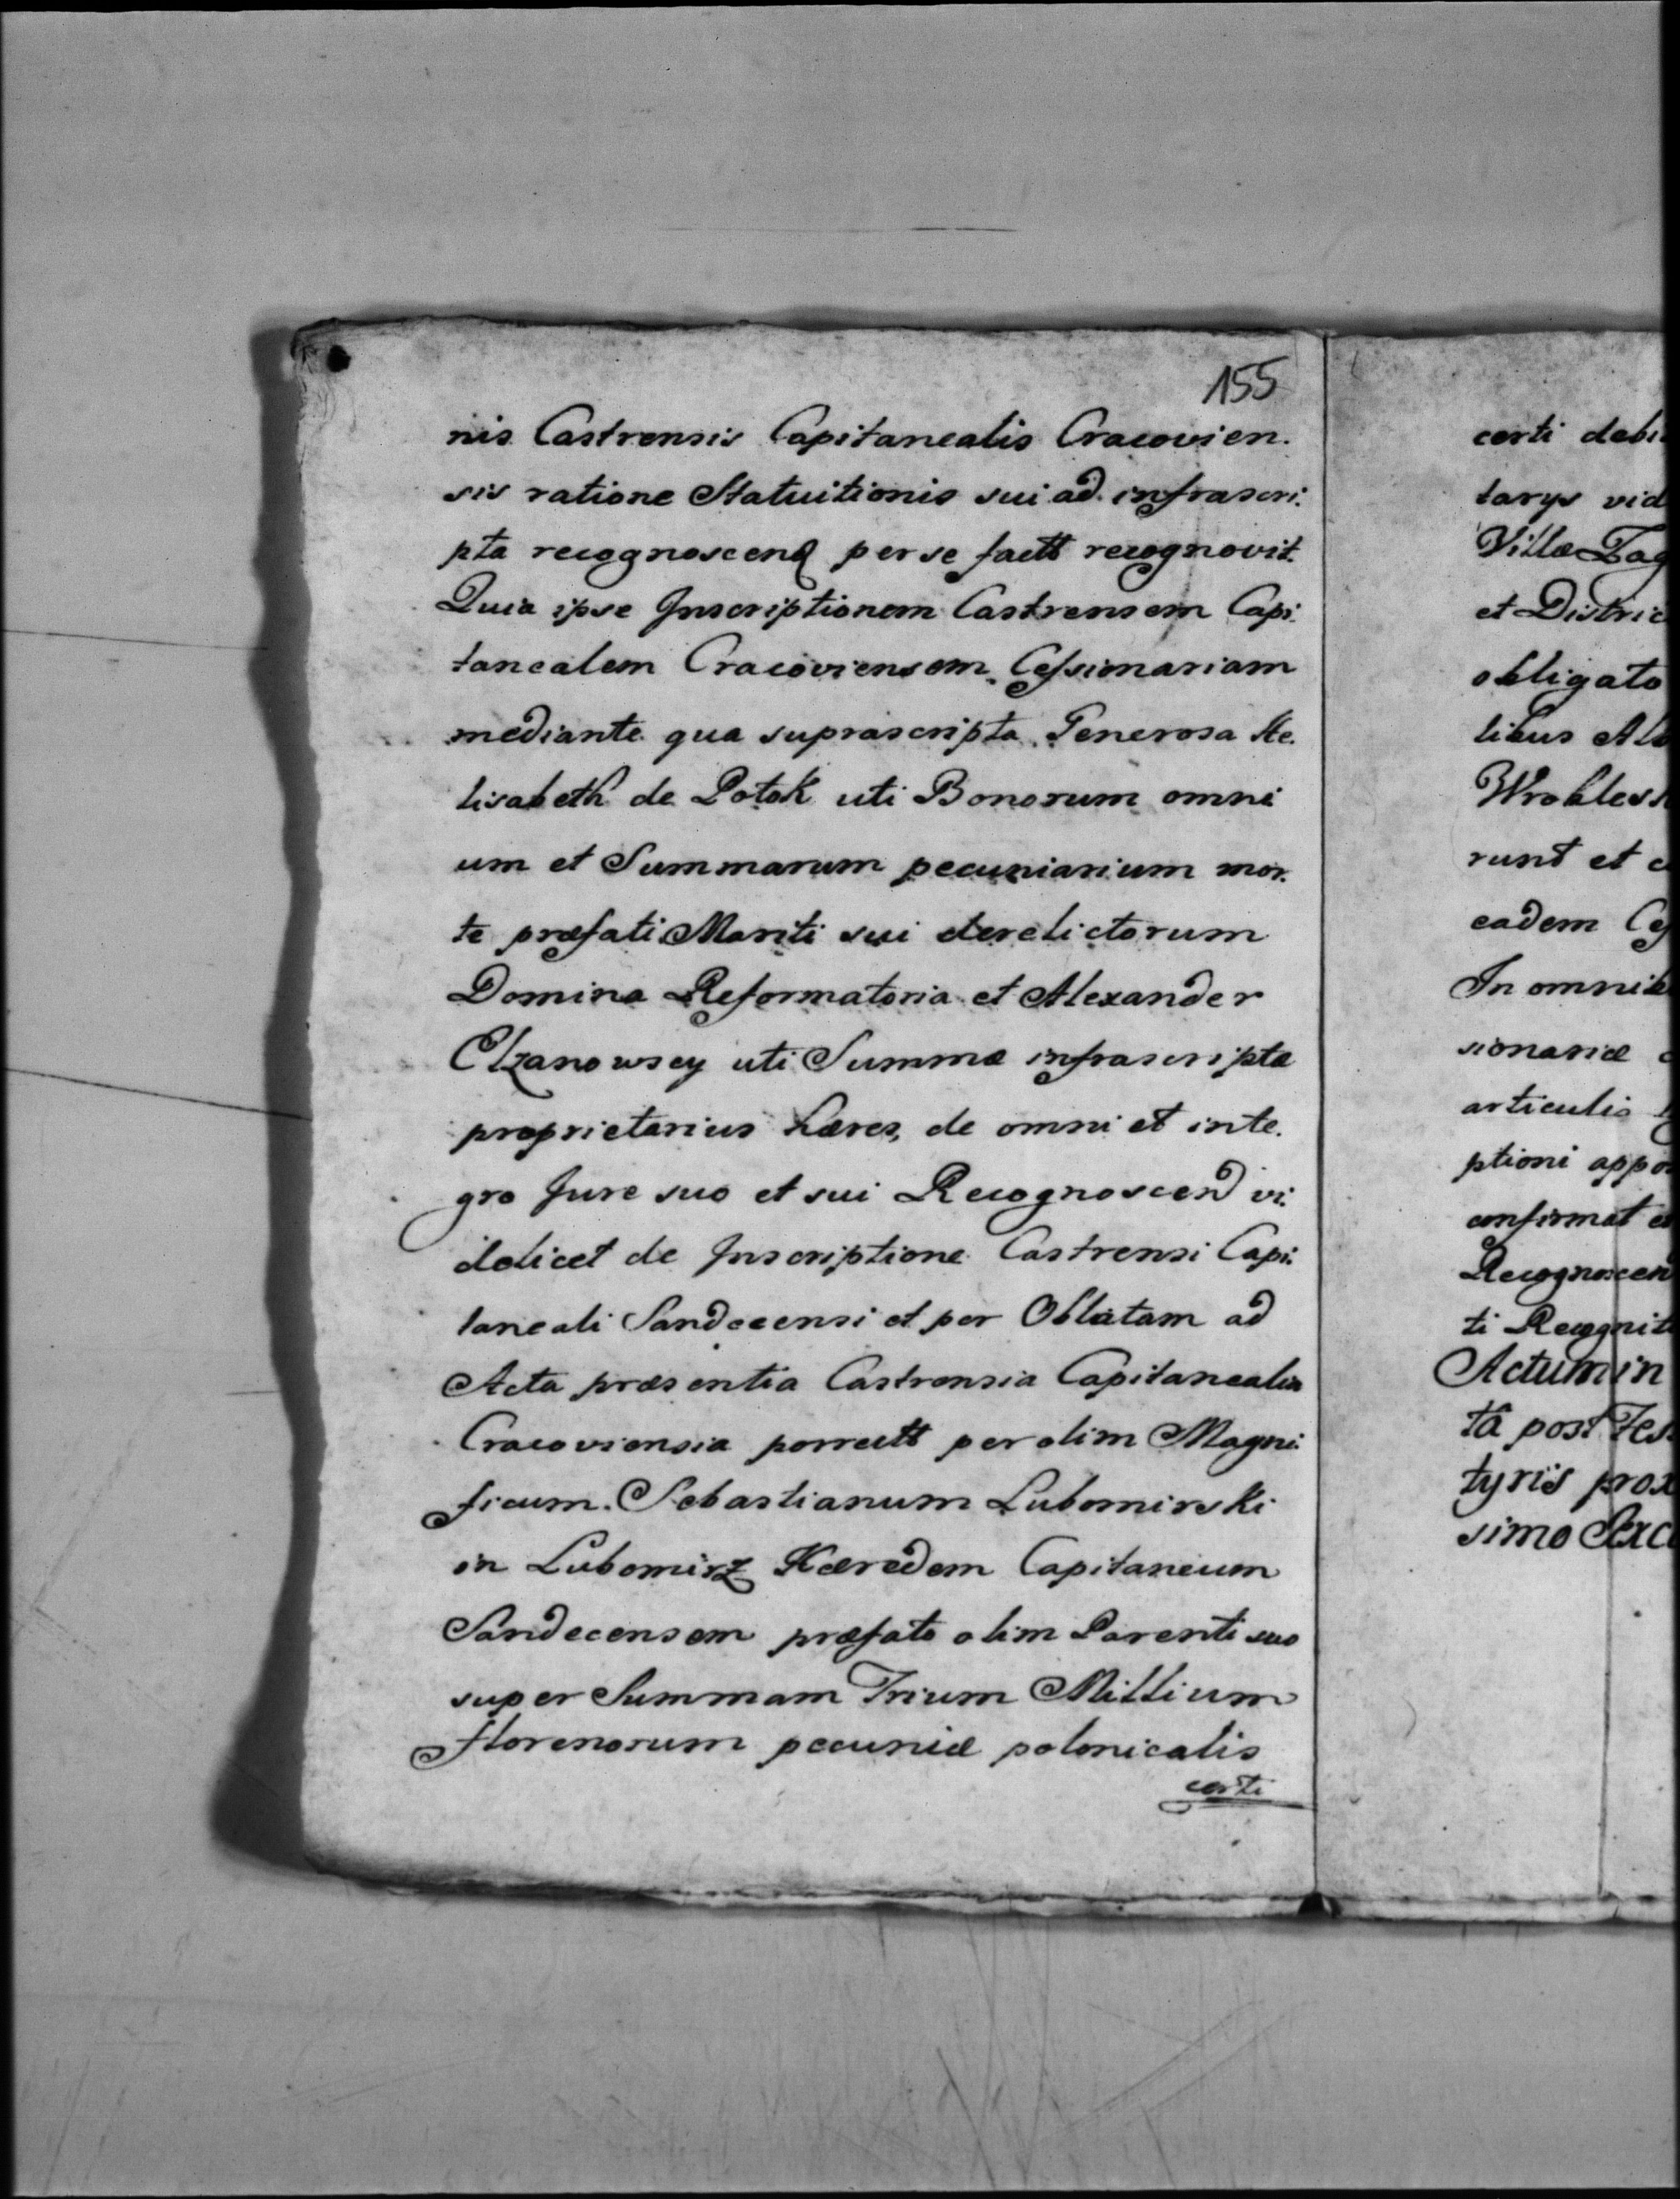 155
nis Castrensis Capitanealis Cracovien.
sis ratione Statuitionis sui ad infrascri.
pta recognoscend per se factt recognovit.
Quia ipse Inscriptionem Castrensem Capi.
tanealem Cracoviensem Cessionariam
mediante qua suprascripta Generosa He.
lisabeth de Potok uti Bonorum omni
um et Summarum pecuniarium mor.
te præfati Mariti sui derelictorum
Domina Reformatoria et Alexander
Elzanowscy uti Summæ infrascriptæ
proprietarius hæres, de omni et inte.
gro Jure suo et sui Recognoscend vi.
delicet de Inscriptione Castrensi Capi.
taneali Sandecensi et per Oblatam ad
Acta præsentia Castrensia Capitanealia
Cracoviensia porrectt per olim Magni.
ficum Sebastianum Lubomirski
in Lubomirz Hæredem Capitaneum
Sandecensem præfato olim Parenti suo
super Summam Trium Millium
florenorum pecuniæ polonicalis
certi
certi debi
tarys vid
Villæ Zag
et Distric
obligato
libus Al
Wroblews
runt et c
eadem Ces
In omnib
sionariæ
articulis
ptioni appo
confirmat e
Recognoscen
ti Recognit
Actum in
tâ post Fes
tyris prox
simo Sexc